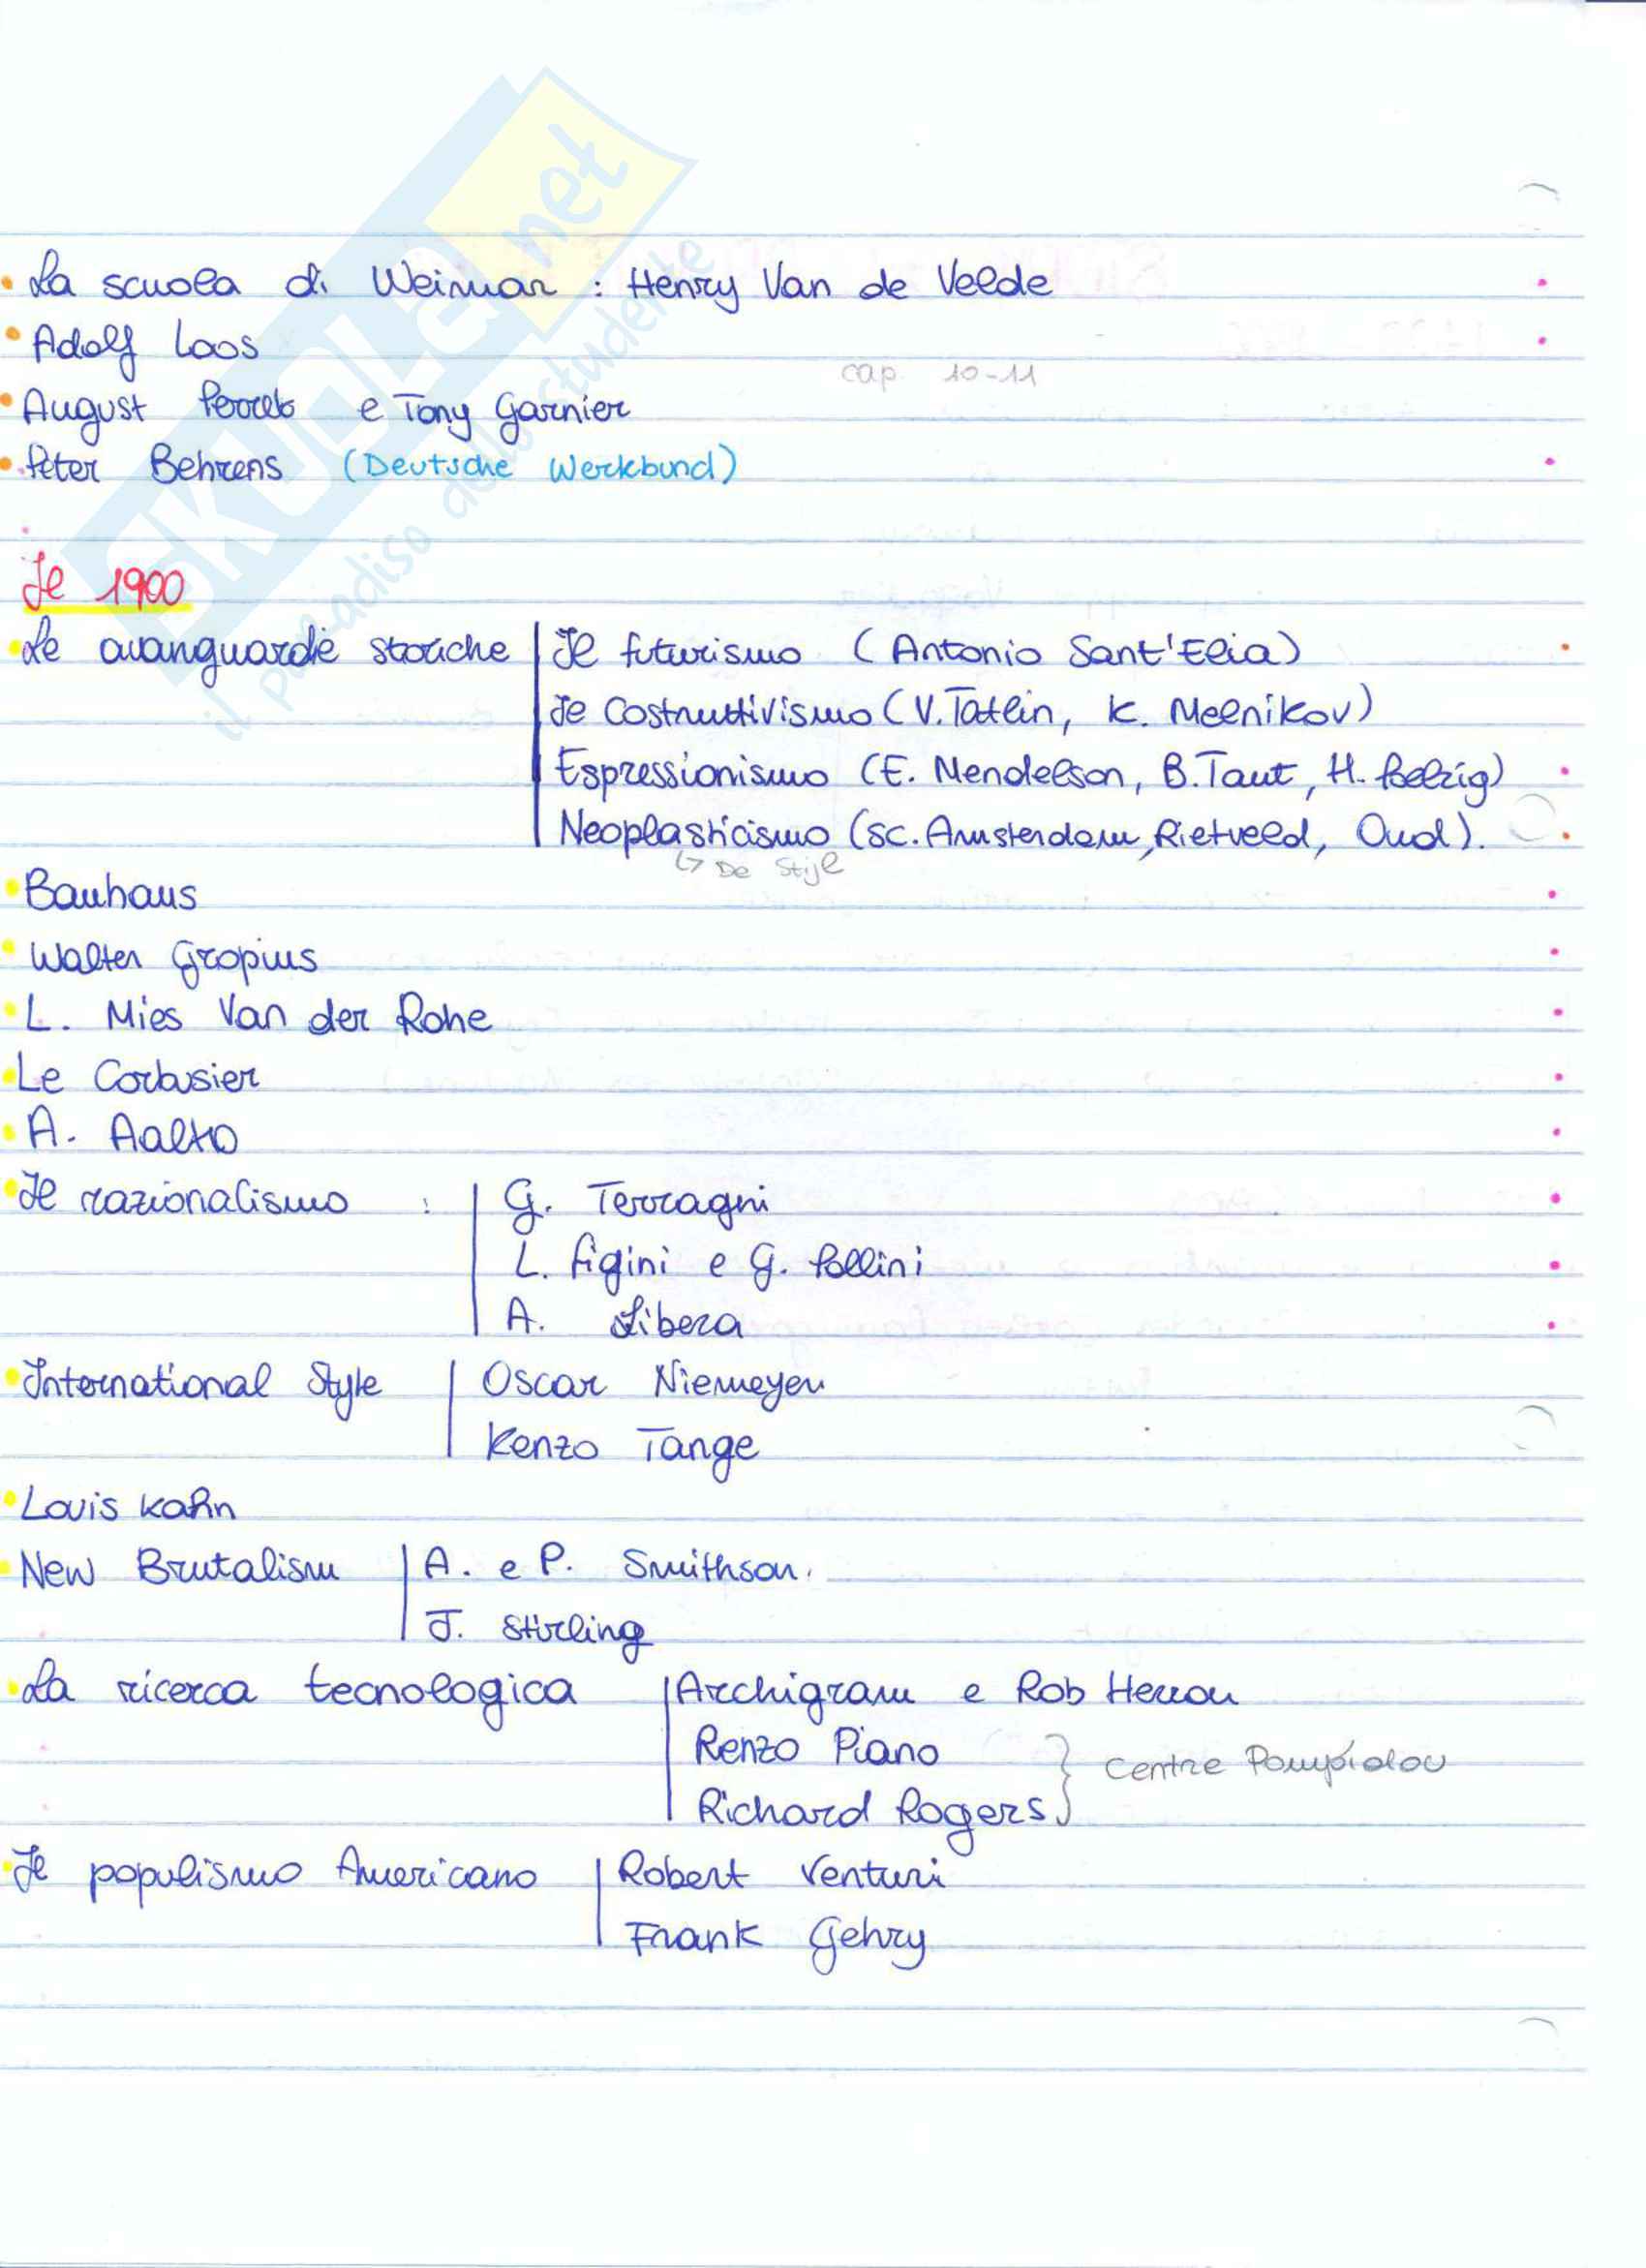 SKUOLA.net
il paradiso dello studente
• La scuola di Weimar : Henry Van de Velde
• Adolf Loos
cap. 10-11
• August Perret e Tony Garnier
• Peter Behrens (Deutsche Werkbund)
Il 1900
• Le avanguardie storiche | Il futurismo (Antonio Sant'Elia)
Il Costruttivismo (V. Tatlin, K. Melnikov)
Espressionismo (E. Mendelson, B. Taut, H. Poelzig)
Neoplasticismo (sc. Amsterdam, Rietveld, Oud).
↳ De Stijl
• Bauhaus
• Walter Gropius
• L. Mies Van der Rohe
• Le Corbusier
• A. Aalto
• Il razionalismo : | G. Terragni
L. Figini e G. Pollini
A. Libera
• International Style | Oscar Niemeyer
Kenzo Tange
• Louis Kahn
• New Brutalism | A. e P. Smithson.
J. Stirling
• La ricerca tecnologica | Archigram e Rob Herron
Renzo Piano
} Centre Pompidou
Richard Rogers
• Il populismo Americano | Robert Venturi
Frank Gehry